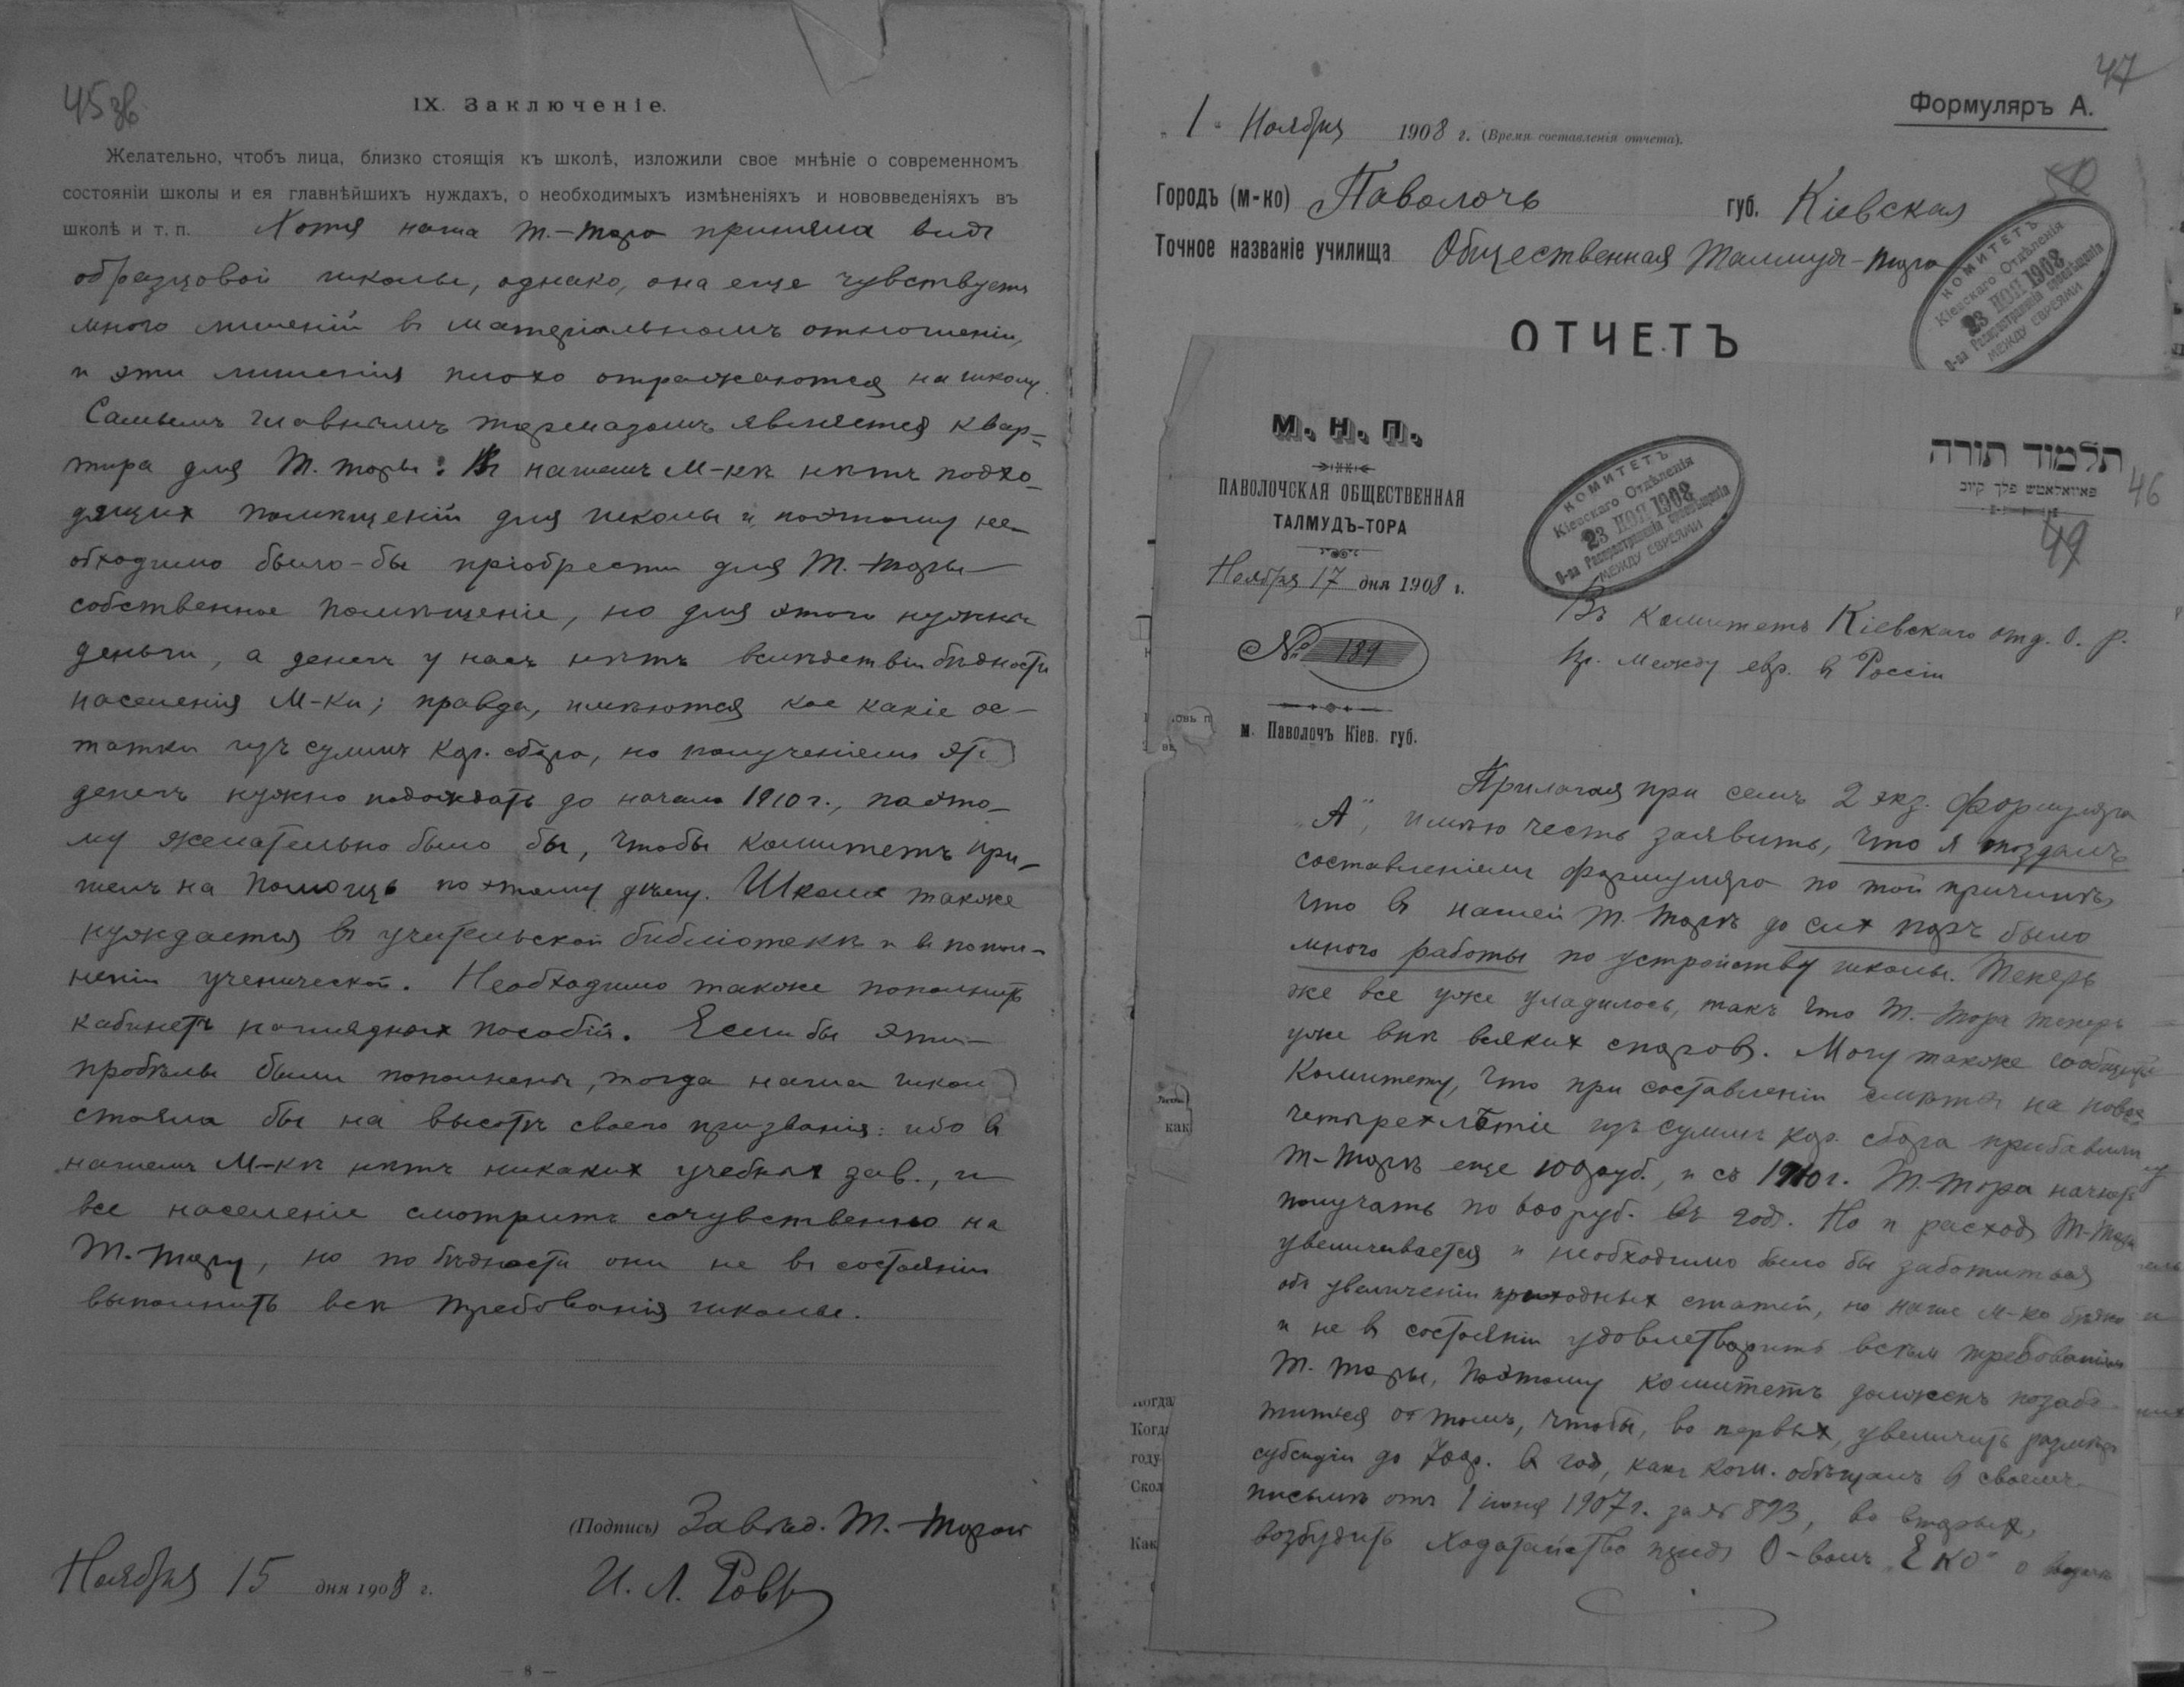 45 зв.
IX. Заключеніе.
Желательно, чтобъ лица, близко стоящія къ школѣ, изложили свое мнѣніе о современномъ
состояніи школы и ея главнѣйшихъ нуждахъ, о необходимыхъ измѣненіяхъ и нововведеніяхъ въ
школѣ и т. п. Хотя наша Т.-тора приняла видъ
образцовой школы, однако, она еще чувствуетъ
много лишеній въ матеріальномъ отношеніи,
и эти лишенія плохо отражаются на школу.
Самымъ главнымъ тормазомъ является квар-
тира для Т. торы: въ нашемъ М-кѣ нѣтъ подхо-
дящихъ помѣщеній для школы и, поэтому не-
обходимо было-бы пріобрести для Т.-торы
собственное помѣщеніе, но для этого нужны
деньги, а денегъ у насъ нѣтъ вслѣдствіи бѣдности
населенія М-ка; правда, имѣются кое какіе ос-
татки изъ суммъ кор. сбора, но полученіемъ эт.
денегъ нужно подождать до начала 1910 г., поэто-
му желательно было бы, чтобы комитетъ при-
шелъ на помощь по этому дѣлу. Школа также
нуждается въ учительской библіотекѣ и въ попол-
неніи ученической. Необходимо также пополнить
кабинетъ наглядныхъ пособій. Если бы эти
пробѣлы были пополнены, тогда наша школ
стояла бы на высотѣ своего призванія: ибо въ
нашемъ М-кѣ нѣтъ никакихъ учебныхъ зав., и
все населеніе смотритъ сочувственно на
Т.-тору, но по бѣдности они не въ состояніи
выполнить всѣ требованія школы.
(Подпись) Завѣд. Т.-торой
Ноября 15 дня 1908 г.
И. Л.
— 8 —
47
Формуляръ А.
„1“ Ноября 1908 г. (Время составленія отчета).
50
Городъ (м-ко) Паволочь губ. Кіевская
Точное названіе училища Общественная Талмудъ-тора
КОМИТЕТЪ
Кіевскаго Отдѣленія
23 НОЯ 1908
О-ва Распространенія просвѣщенія
МЕЖДУ ЕВРЕЯМИ
ОТЧЕТЪ
М. Н. П.
ПАВОЛОЧСКАЯ ОБЩЕСТВЕННАЯ
ТАЛМУДЪ-ТОРА
Ноября 17 дня 1908 г.
№ 189
м. Паволочъ Кіев. губ.
КОМИТЕТЪ
Кіевскаго Отдѣленія
23 НОЯ 1908
О-ва Распространенія просвѣщенія
МЕЖДУ ЕВРЕЯМИ
תלמוד תורה
פאוואלאטש פלך קיוב
46
49
Въ Комитетъ Кіевскаго отд. О. р.
пр. между евр. въ Россіи
Прилагая при семъ 2 экз. формуляра
„А“, имѣю честь заявить, что я опоздалъ
составленіемъ формуляра по той причинѣ,
что въ нашей Т. торѣ до сихъ поръ было
много работы по устройству школы. Теперь
же все уже уладилось, такъ что Т.-тора теперь
уже внѣ всякихъ споровъ. Могу также сообщить
Комитету, что при составленіи смѣты на новое
четырехлѣтіе изъ суммъ кор. сбора прибавили
Т-торѣ еще 100 руб., и съ 1910 г. Т.-тора начнетъ
получать по 600 руб. въ годъ. Но и расходъ Т-торы
увеличивается и необходимо было бы заботиться
объ увеличеніи приходныхъ статей, но наше м-ко бѣдно
и не въ состояніи удовлетворить всѣмъ требованіямъ
Т. торы, поэтому комитетъ долженъ позабо-
титься о томъ, чтобы, во первыхъ, увеличить размѣръ
субсидіи до 700 р. въ годъ, какъ ком. обѣщалъ въ своемъ
письмѣ отъ 1 іюня 1907 г. за № 893, во вторыхъ,
возбудить ходатайство предъ О-вомъ „ЕКО“ о выдачѣ
как
Когда
Когд
году
Скол
Как